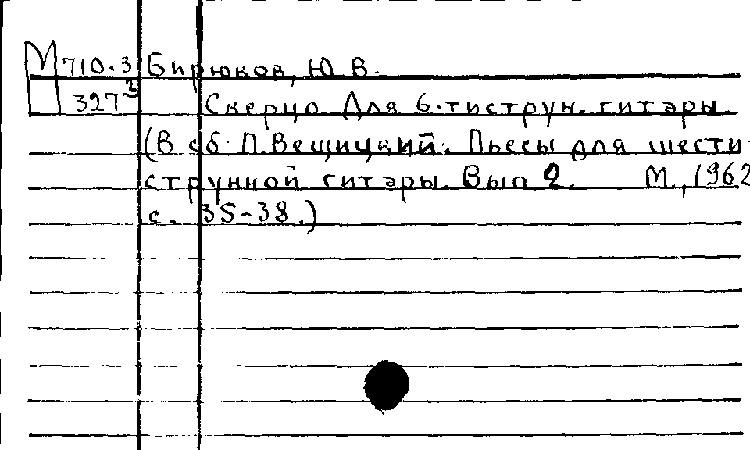 М 710.3 Бирюков, Ю. В.
327 3 Скерцо Для 6-тиструн. гитары
(В сб. П. Вещицкий. Пьесы для шести
струнной гитары. Вып 2. М., 1962
с. 35-38.)